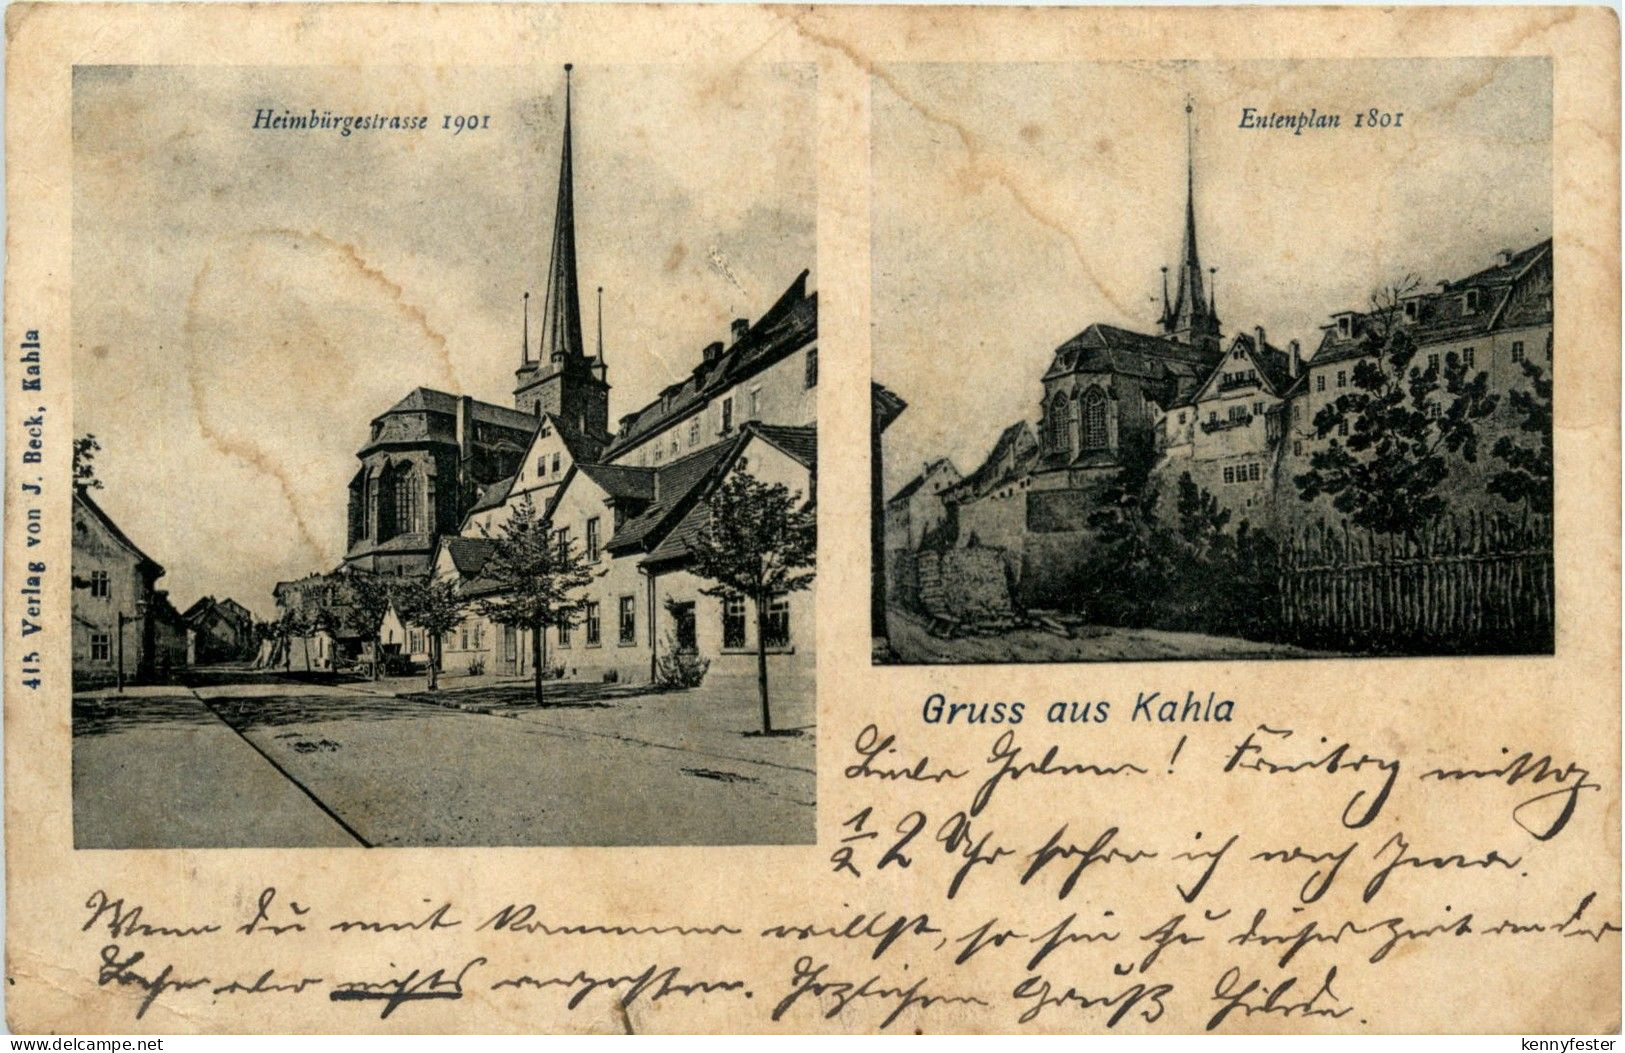 Heimbürgestrasse 1901
Entenplan 1801
415 Verlag von J. Beck, Kahla
Gruss aus Kahla
Liebe ! Freitag mittag
1/2 2 Uhr fahre ich nach Jena.
Wenn du mit kommen willst, so sei zu dieser Zeit an der
Bahn aber nichts vergessen. Herzlichen Gruß Hilda.
delcampe.net
kennyfester